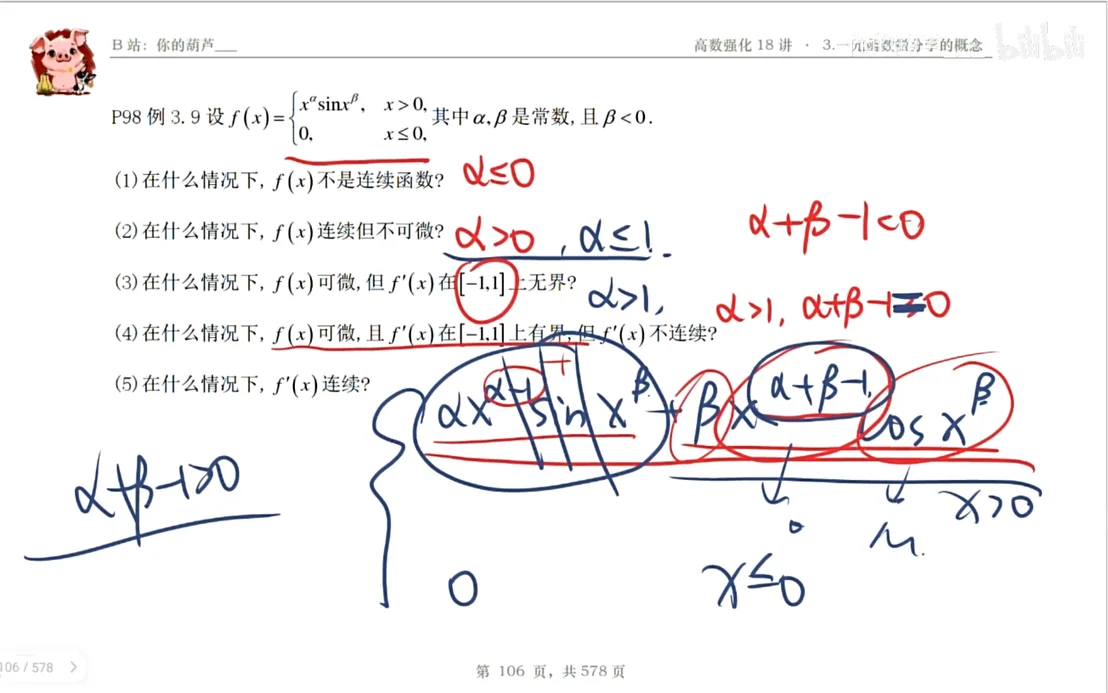 B 站：你的葫芦___
高数强化 18 讲 · 3.一元函数微分学的概念
bilibili
P98 例 3.9 设 f(x)={x^α sin x^β, x>0, 0, x≤0, 其中 α,β 是常数,且 β<0.
(1)在什么情况下, f(x) 不是连续函数? α≤0
(2)在什么情况下, f(x) 连续但不可微? α>0 , α≤1.
α+β-1<0
(3)在什么情况下, f(x) 可微,但 f′(x) 在[-1,1]上无界? α>1,
α>1, α+β-1=0
(4)在什么情况下, f(x) 可微,且 f′(x) 在[-1,1]上有界,但 f′(x) 不连续?
(5)在什么情况下, f′(x) 连续?
αx^{α-1} sin x^β + βx^{α+β-1} cos x^β
x>0
0
M.
α+β-1>0
0 x≤0
106 / 578 >
第 106 页，共 578 页